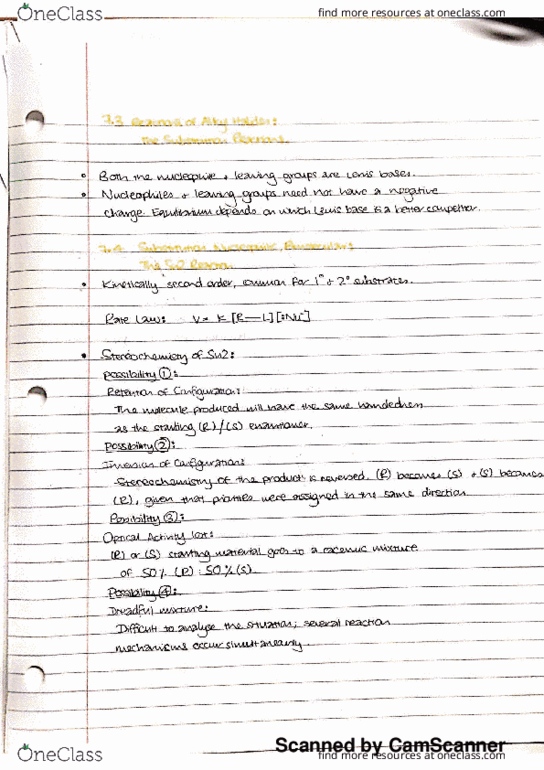 OneClass
find more resources at oneclass.com
7.3 Reactions of Alkyl Halides:
The Substitution Reactions
• Both the nucleophile + leaving groups are Lewis bases.
• Nucleophiles + leaving groups need not have a negative
charge. Equilibrium depends on which Lewis base is a better competitor.
7.4: Substitution, Nucleophilic, Bimolecular:
The SN2 Reaction
• Kinetically second order, common for 1° + 2° substrates.
Rate Law: V = K [R—L][:Nu⁻]
• Stereochemistry of SN2:
Possibility ①:
Retention of Configuration:
The molecule produced will have the same handedness
as the starting (R)/(S) enantiomer.
Possibility ②:
Inversion of Configuration:
Stereochemistry of the product is reversed. (R) becomes (S) + (S) becomes
(R), given that priorities were assigned in the same direction
Possibility ③:
Optical Activity lost:
(R) or (S) starting material goes to a racemic mixture
of 50% (R) : 50% (S).
Possibility ④:
Dreadful mixture:
Difficult to analyse the situation; several reaction
mechanisms occur simultaneously.
Scanned by CamScanner
OneClass
find more resources at oneclass.com